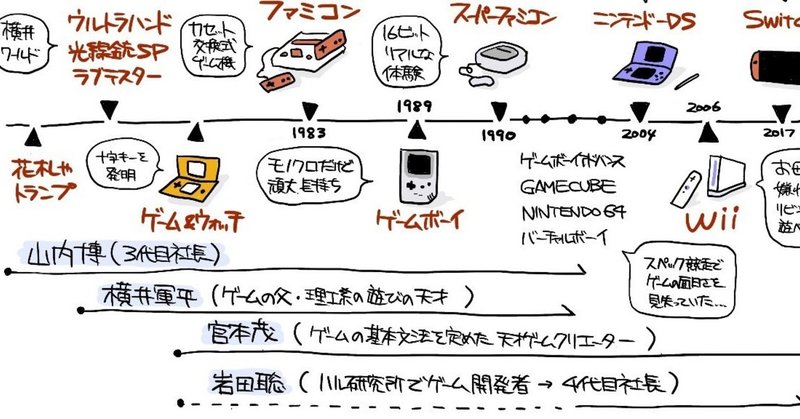 横井
ワールド
ウルトラハンド
光線銃SP
ラブテスター
カセット
交換式
ゲーム機
ファミコン
16ビット
リアルな
体験
スーパーファミコン
ニンテンドーDS
Switc
1983
1989
1990
2004
2006
2017
花札や
トランプ
十字キーを
発明
ゲーム&ウォッチ
モノクロだけど
頑丈長持ち
ゲームボーイ
ゲームボーイアドバンス
GAMECUBE
NINTENDO64
バーチャルボーイ
Wii
スペック競走で
ゲームの面白さを
見失っていた...
山内博(3代目社長)
横井軍平(ゲームの父・理工系の遊びの天才)
宮本茂(ゲームの基本文法を定めた天才ゲームクリエーター)
岩田聡(ハル研究所でゲーム開発者→4代目社長)